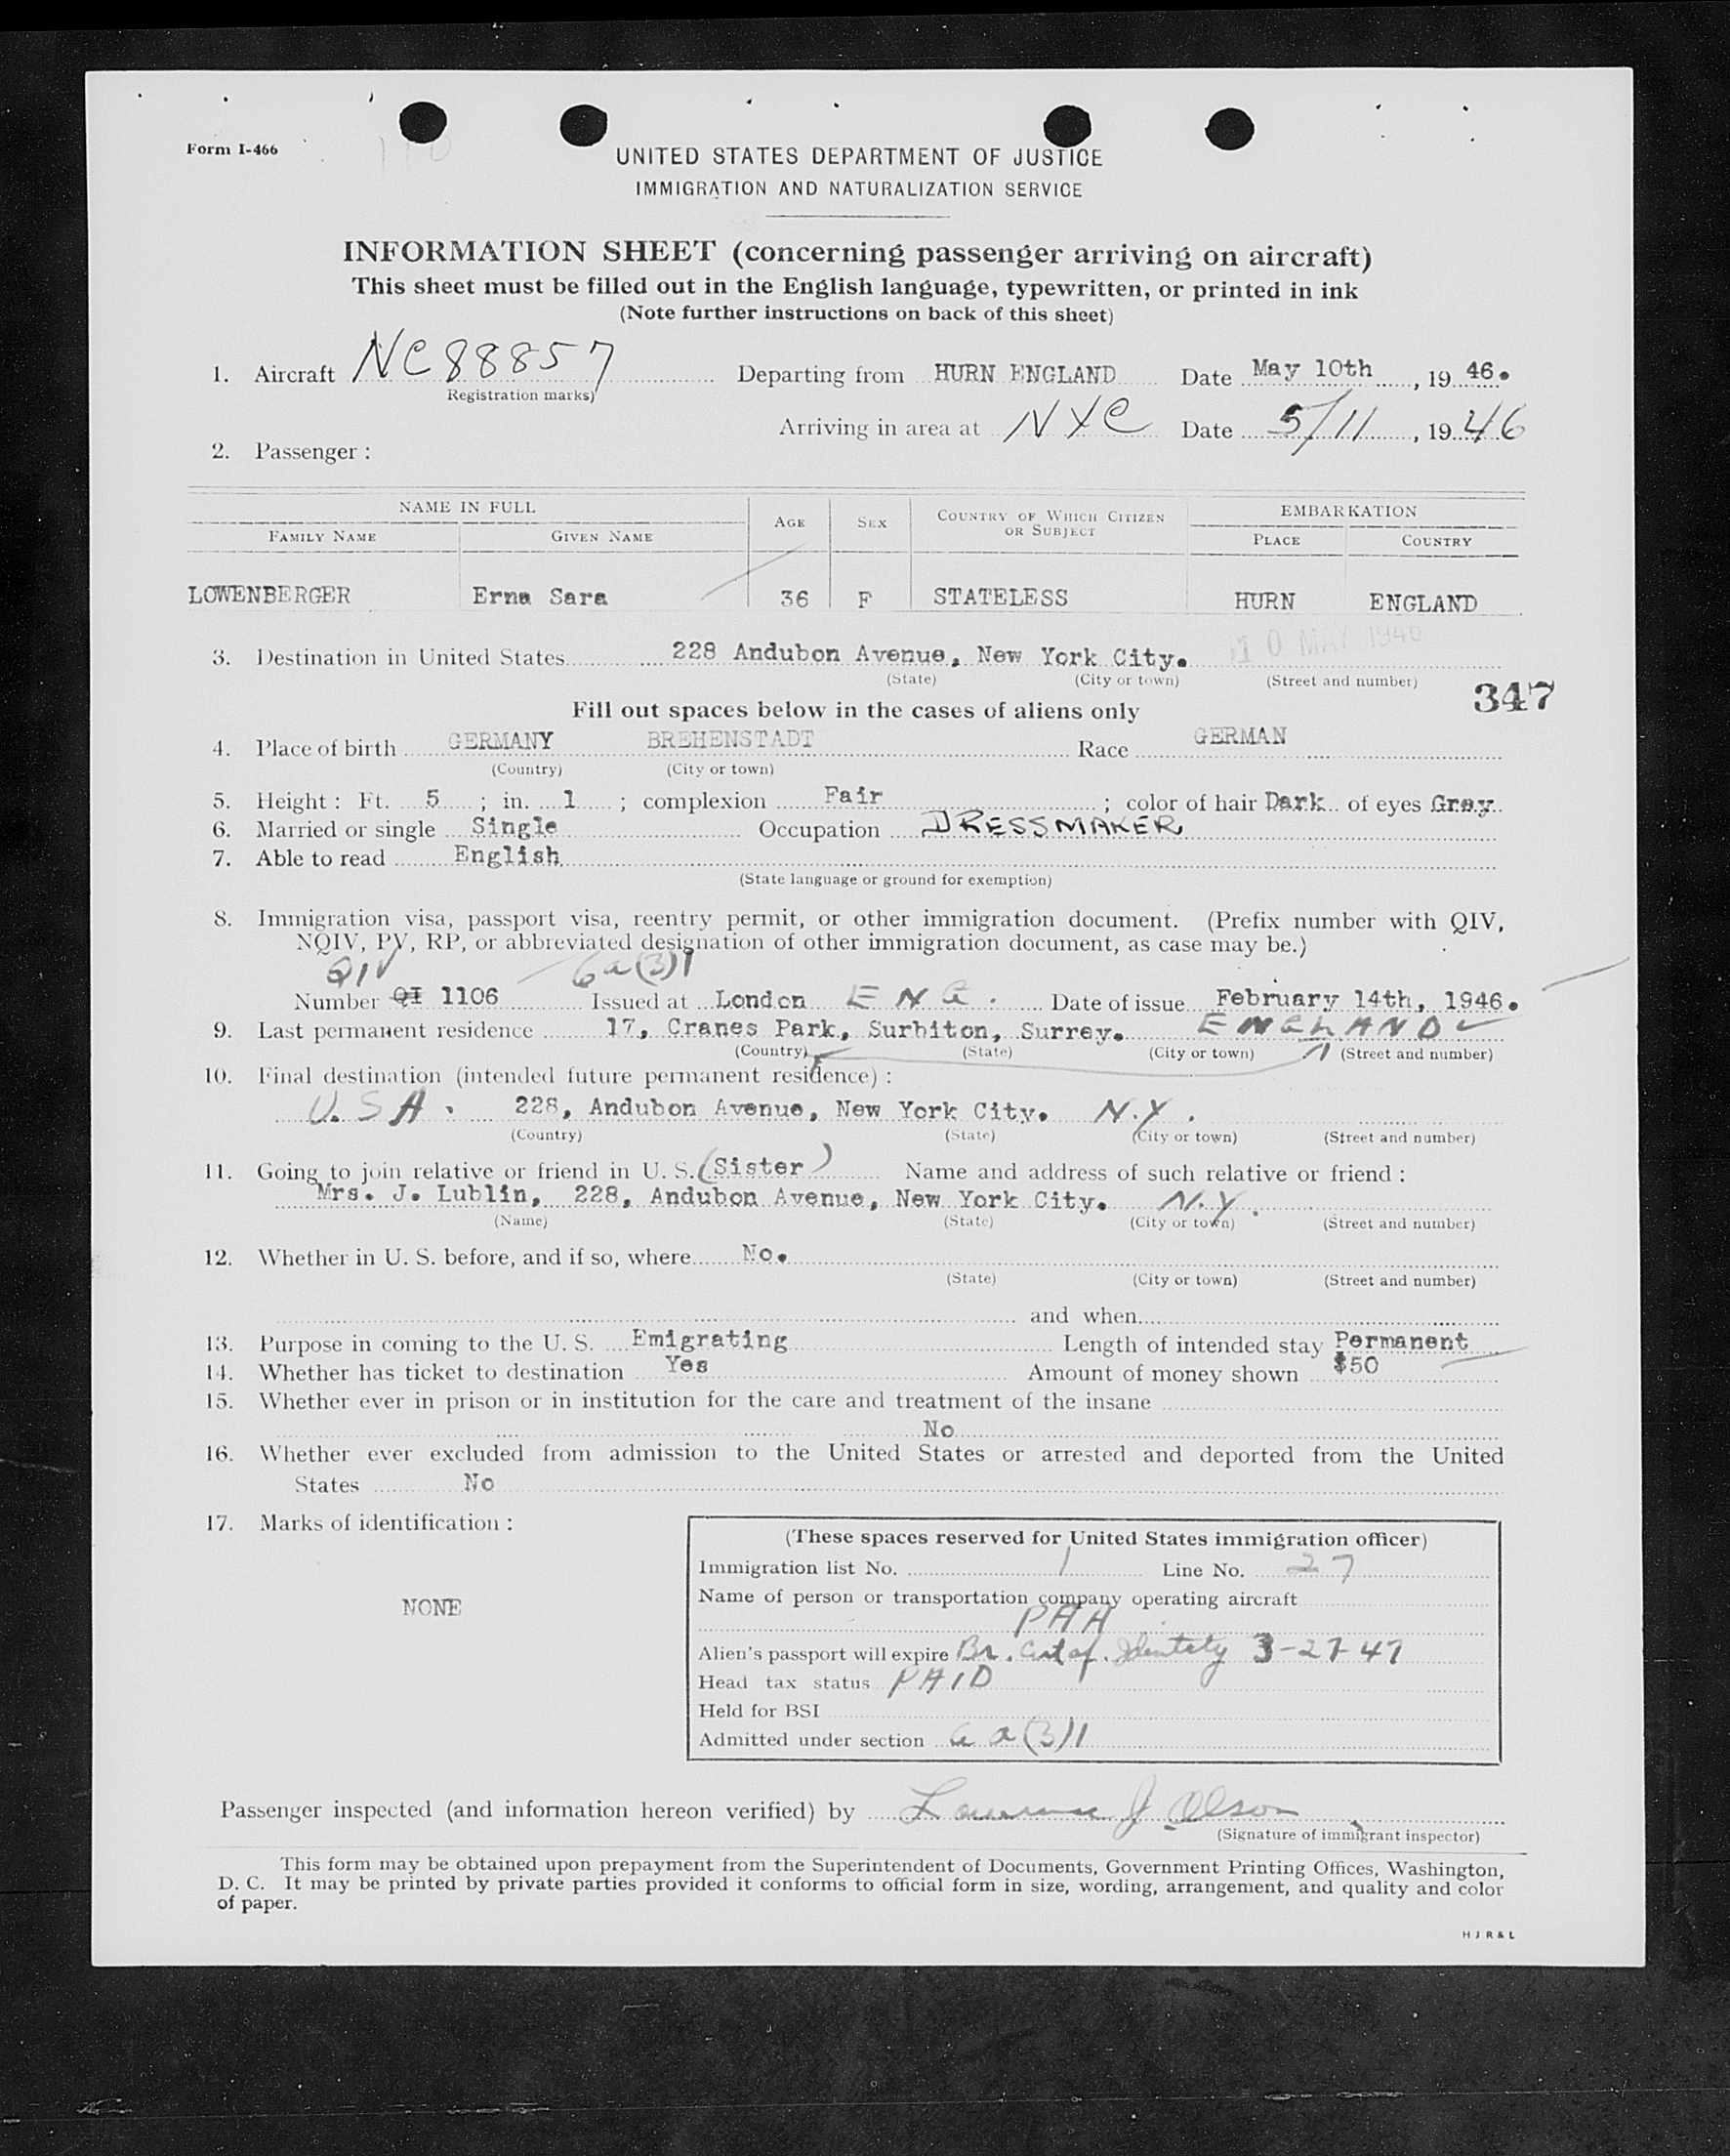 Form I-466
UNITED STATES DEPARTMENT OF JUSTICE
IMMIGRATION AND NATURALIZATION SERVICE
INFORMATION SHEET (concerning passenger arriving on aircraft)
This sheet must be filled out in the English language, typewritten, or printed in ink
(Note further instructions on back of this sheet)
1. Aircraft NC 88857 Departing from HURN ENGLAND Date May 10th, 19 46.
Registration marks)
Arriving in area at NYC Date 5/11, 19 46
2. Passenger :
NAME IN FULL AGE SEX COUNTRY OF WHICH CITIZEN OR SUBJECT EMBARKATION
FAMILY NAME GIVEN NAME PLACE COUNTRY
LOWENBERGER Erna Sara 36 F STATELESS HURN ENGLAND
10 MAY 1946
3. Destination in United States 228 Andubon Avenue, New York City.
(State) (City or town) (Street and number)
347
Fill out spaces below in the cases of aliens only
4. Place of birth GERMANY BREHENSTADT Race GERMAN
(Country) (City or town)
5. Height : Ft. 5 ; in. 1 ; complexion Fair ; color of hair Dark of eyes Gray
6. Married or single Single Occupation DRESSMAKER
7. Able to read English
(State language or ground for exemption)
8. Immigration visa, passport visa, reentry permit, or other immigration document. (Prefix number with QIV,
NQIV, PV, RP, or abbreviated designation of other immigration document, as case may be.)
QIV 6a(3)1
Number QI 1106 Issued at London ENG. Date of issue February 14th, 1946.
9. Last permanent residence 17, Cranes Park, Surbiton, Surrey. ENGLAND
(Country) (State) (City or town) (Street and number)
10. Final destination (intended future permanent residence) :
U.S.A. 228, Andubon Avenue, New York City. N.Y.
(Country) (State) (City or town) (Street and number)
11. Going to join relative or friend in U. S. (Sister) Name and address of such relative or friend :
Mrs. J. Lublin, 228, Andubon Avenue, New York City. N.Y.
(Name) (State) (City or town) (Street and number)
12. Whether in U. S. before, and if so, where No.
(State) (City or town) (Street and number)
and when
13. Purpose in coming to the U. S. Emigrating Length of intended stay Permanent
14. Whether has ticket to destination Yes Amount of money shown $50
15. Whether ever in prison or in institution for the care and treatment of the insane
No
16. Whether ever excluded from admission to the United States or arrested and deported from the United
States No
17. Marks of identification :
NONE
(These spaces reserved for United States immigration officer)
Immigration list No. 1 Line No. 27
Name of person or transportation company operating aircraft
PAA
Alien's passport will expire Br. Cert of. Identity 3-27-47
Head tax status PAID
Held for BSI
Admitted under section 6 a (3) 1
Passenger inspected (and information hereon verified) by Lawrence J Olson
(Signature of immigrant inspector)
This form may be obtained upon prepayment from the Superintendent of Documents, Government Printing Offices, Washington,
D. C. It may be printed by private parties provided it conforms to official form in size, wording, arrangement, and quality and color
of paper.
H J R & L